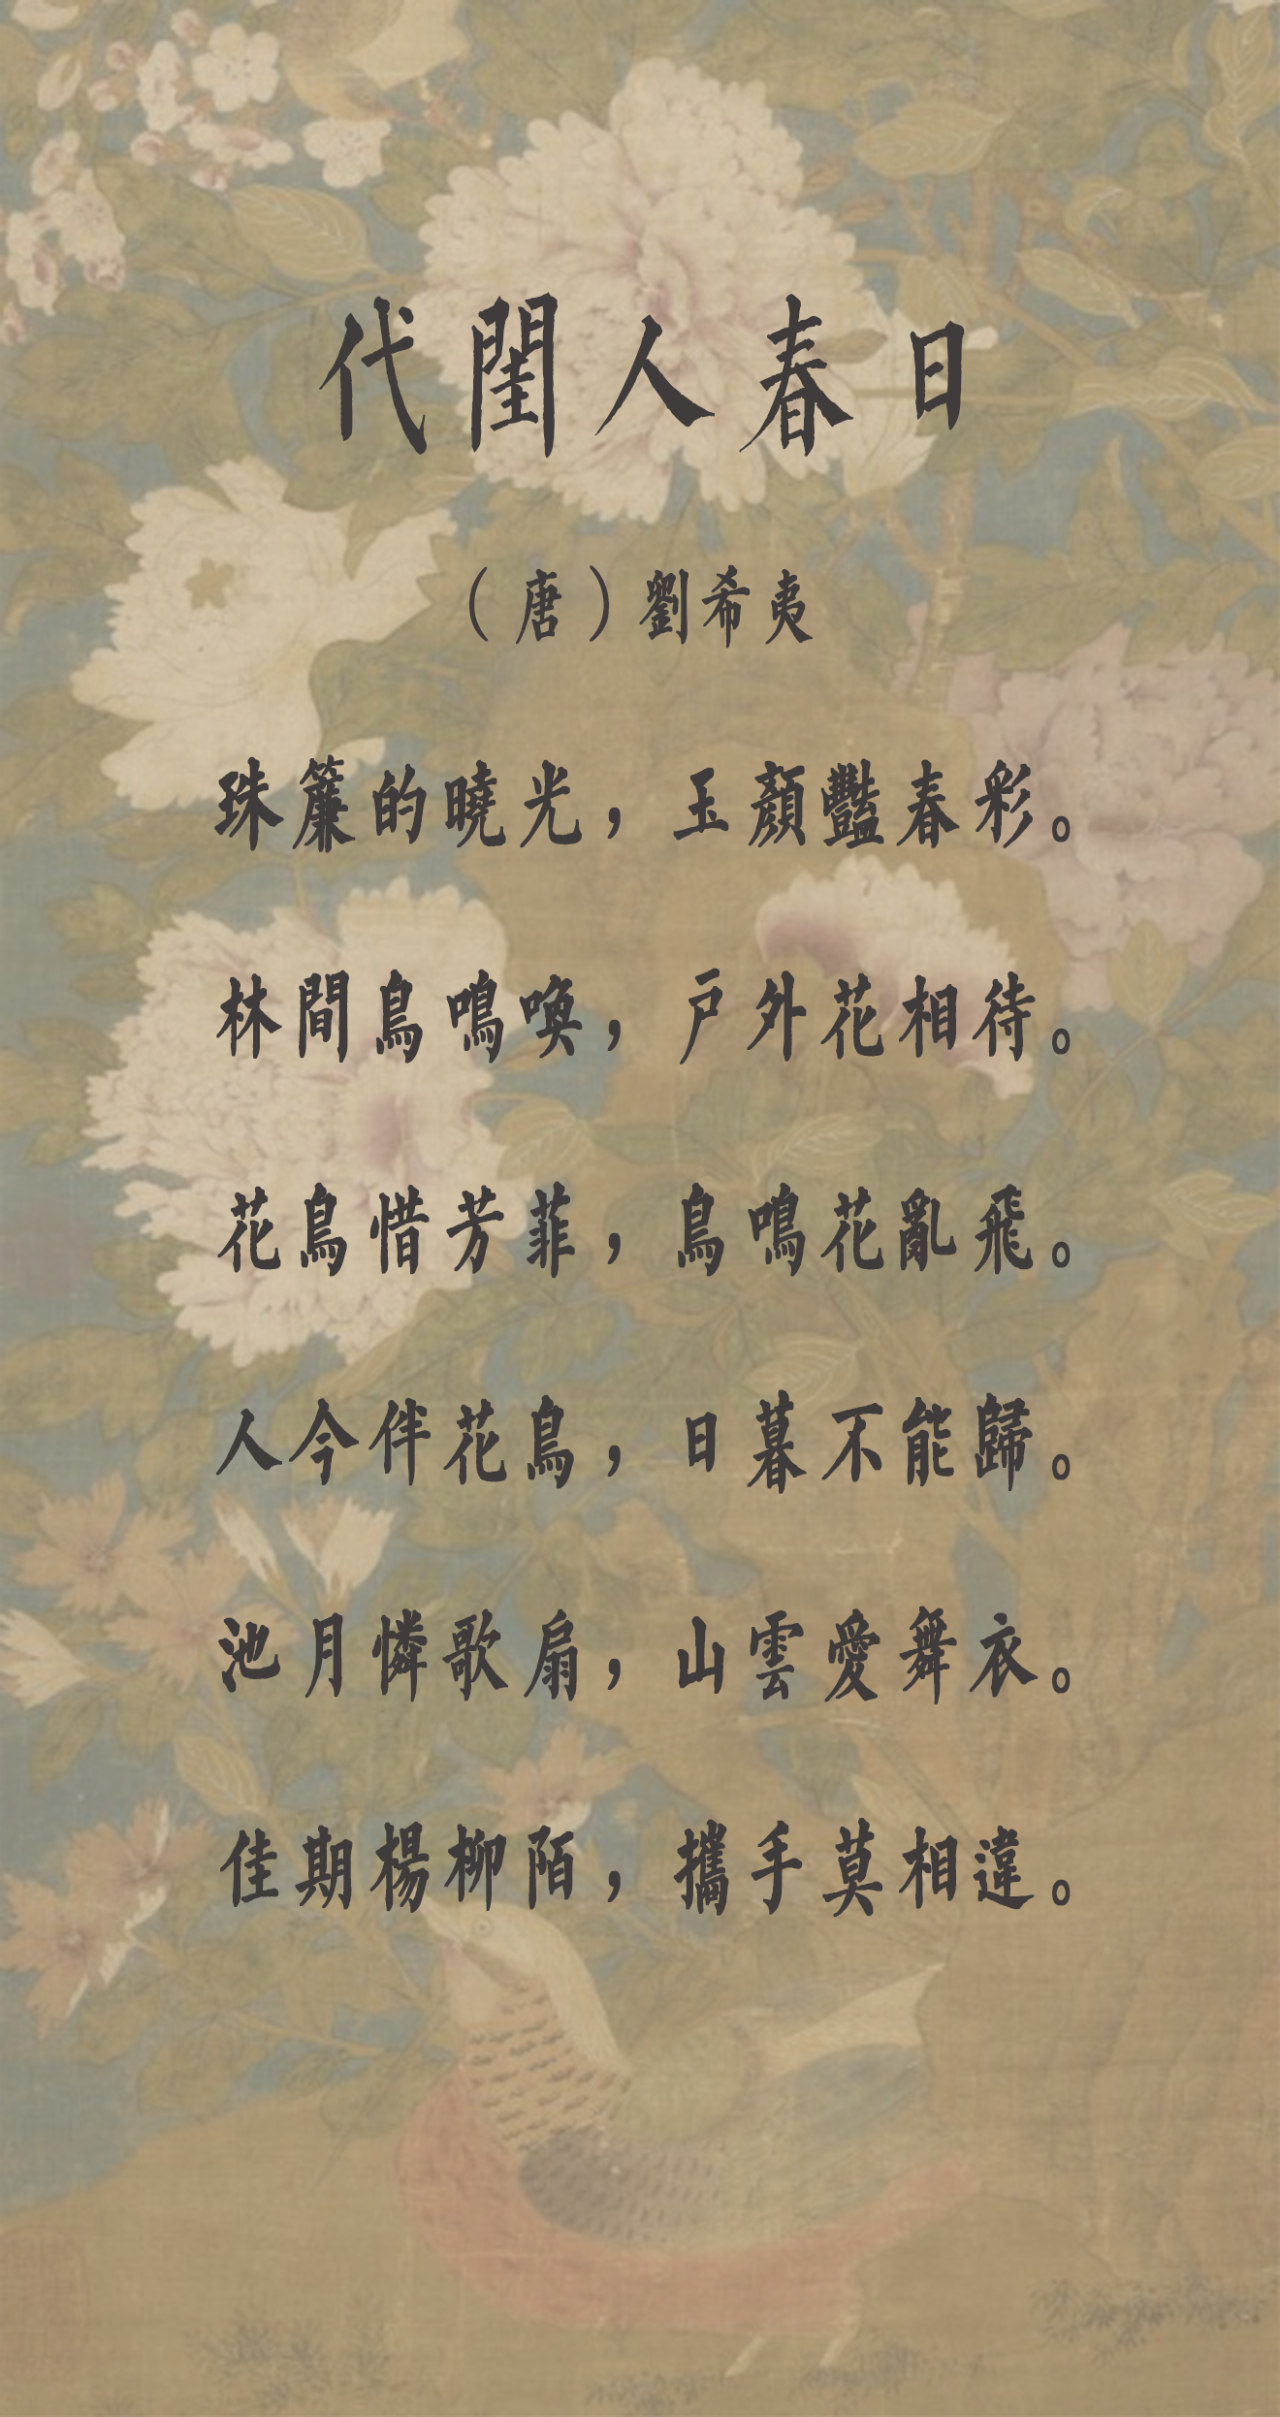 代閨人春日
（唐）劉希夷
珠簾的曉光，玉顏豔春彩。
林間鳥鳴喚，戶外花相待。
花鳥惜芳菲，鳥鳴花亂飛。
人今伴花鳥，日暮不能歸。
池月憐歌扇，山雲愛舞衣。
佳期楊柳陌，攜手莫相違。